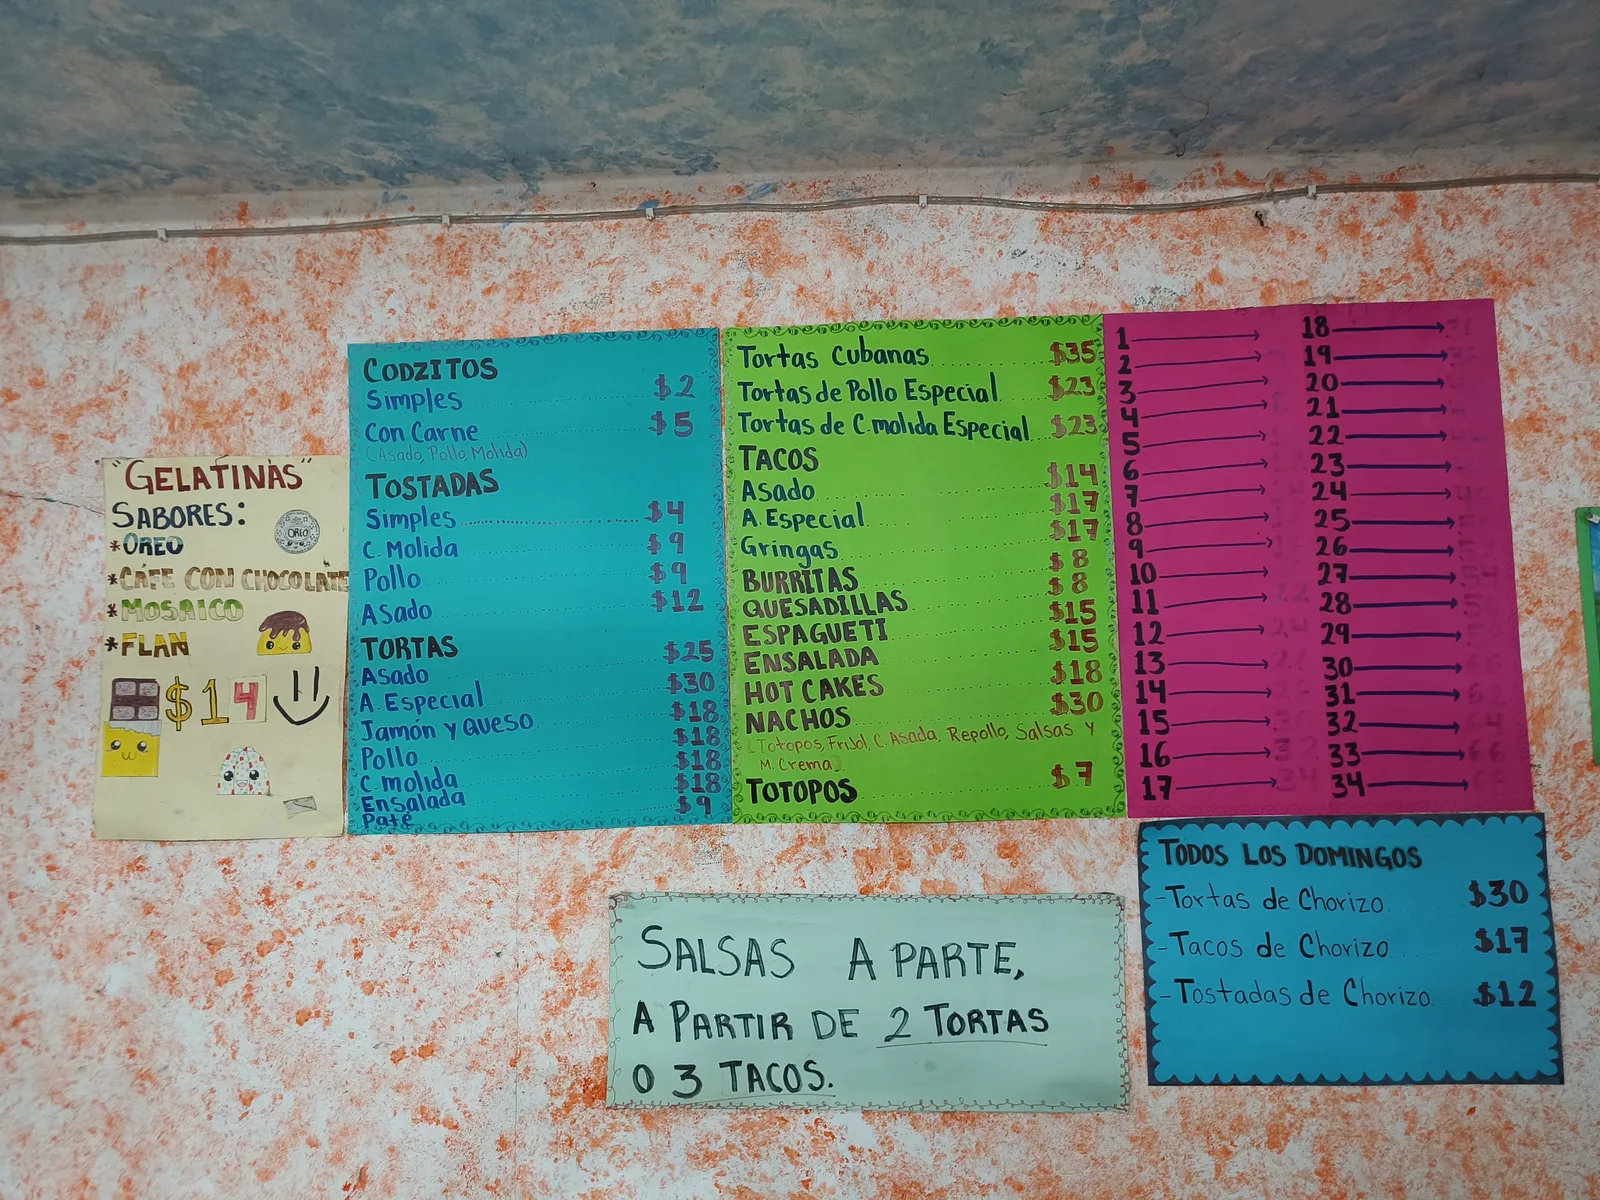 "GELATINAS"
SABORES:
*OREO
OREO
*CAFE CON CHOCOLATE
*MOSAICO
*FLAN
$14
CODZITOS
Simples $2
Con Carne $5
(Asado, Pollo, Molida)
TOSTADAS
Simples $4
C. Molida $9
Pollo $9
Asado $12
TORTAS
Asado $25
A. Especial $30
Jamón y Queso $18
Pollo $18
C molida $18
Ensalada $18
Paté $9
Tortas Cubanas $35
Tortas de Pollo Especial $23
Tortas de C.molida Especial $23
TACOS
Asado $14
A. Especial $17
Gringas $17
BURRITAS $8
QUESADILLAS $8
ESPAGUETI $15
ENSALADA $15
HOT CAKES $18
NACHOS $30
(Totopos, Frijol, C. Asada, Repollo, Salsas y
M. Crema)
TOTOPOS $7
1
2
3
4
5
6
7
8
9
10
11
12
13
14
15
16
17
18
19
20
21
22
23
24
25
26
27
28
29
30
31
32
33
34
TODOS LOS DOMINGOS
-Tortas de Chorizo $30
-Tacos de Chorizo $17
-Tostadas de Chorizo $12
SALSAS A PARTE,
A PARTIR DE 2 TORTAS
O 3 TACOS.